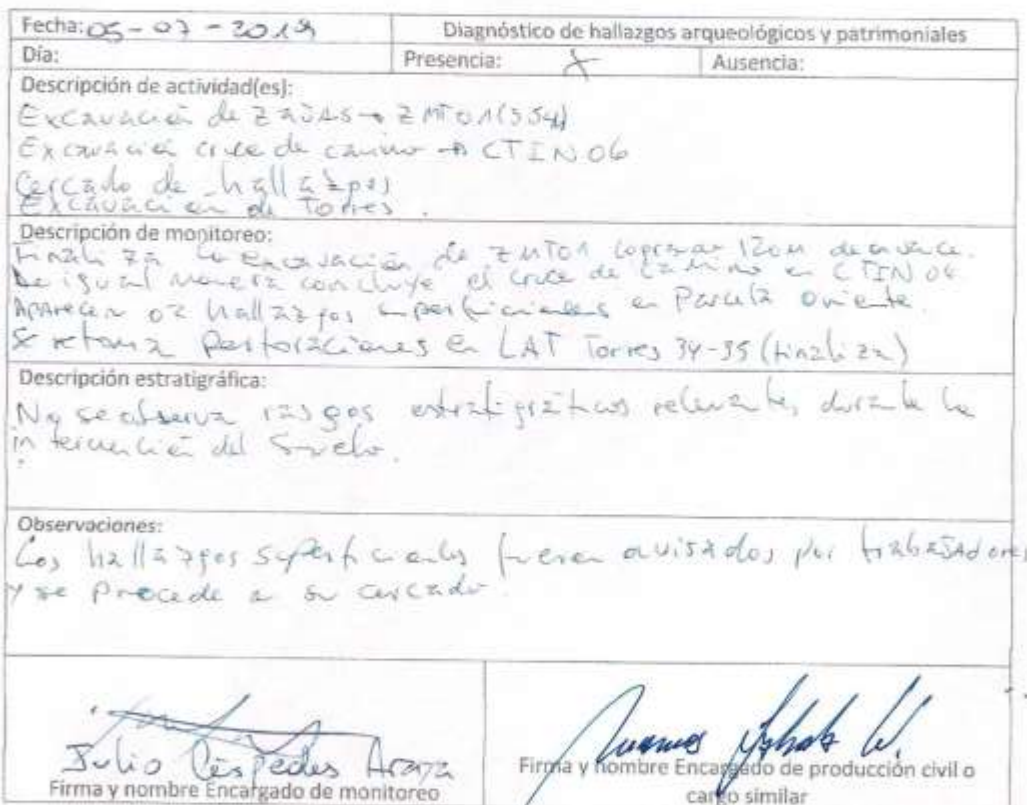 Fecha: 05-07-2019
Diagnóstico de hallazgos arqueológicos y patrimoniales
Día:
Presencia: X
Ausencia:
Descripción de actividad(es):
Excavación de zajas → ZMT01(354)
Excavación cruce de camino → CTIN06
Cercado de hallazgos
Excavación de Torres.
Descripción de monitoreo:
Finaliza la excavación de ZMT01 120m de avance.
De igual manera concluye el cruce de camino en CTIN06
Aparecen 02 hallazgos superficiales en Parcela Oriente.
Se retoma perforaciones en LAT Torres 34-35 (finaliza)
Descripción estratigráfica:
No se observa rasgos estratigráficos relevantes durante la
intervención del suelo.
Observaciones:
Los hallazgos superficiales fueron avisados por trabajadores
y se procede a su cercado.
Julio Céspedes Araya
Firma y nombre Encargado de monitoreo
Firma y nombre Encargado de producción civil o
cargo similar